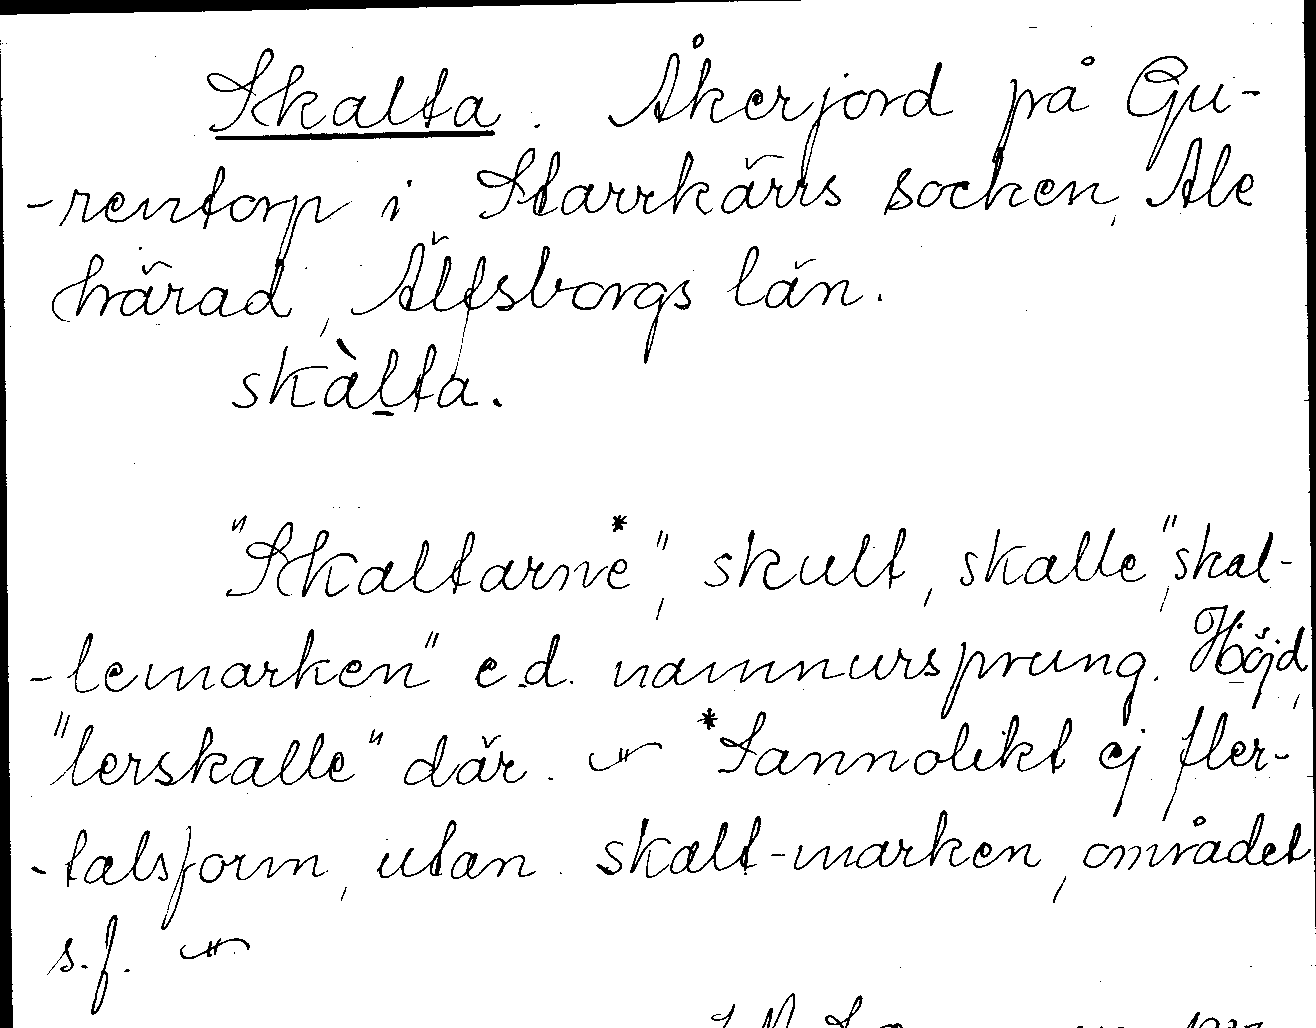 Skalta. Åkerjord på Gu-
-rentorp i Starrkärrs socken, Ale
härad, Älfsborgs län.
skàl̲ta.
"Skaltarne*", skult, skalle, "skal-
-lemarken" e.d. namnursprung. Höjd,
"lerskalle" där. *Sannolikt ej fler-
-talsform, utan skalt-marken, området
s.f.